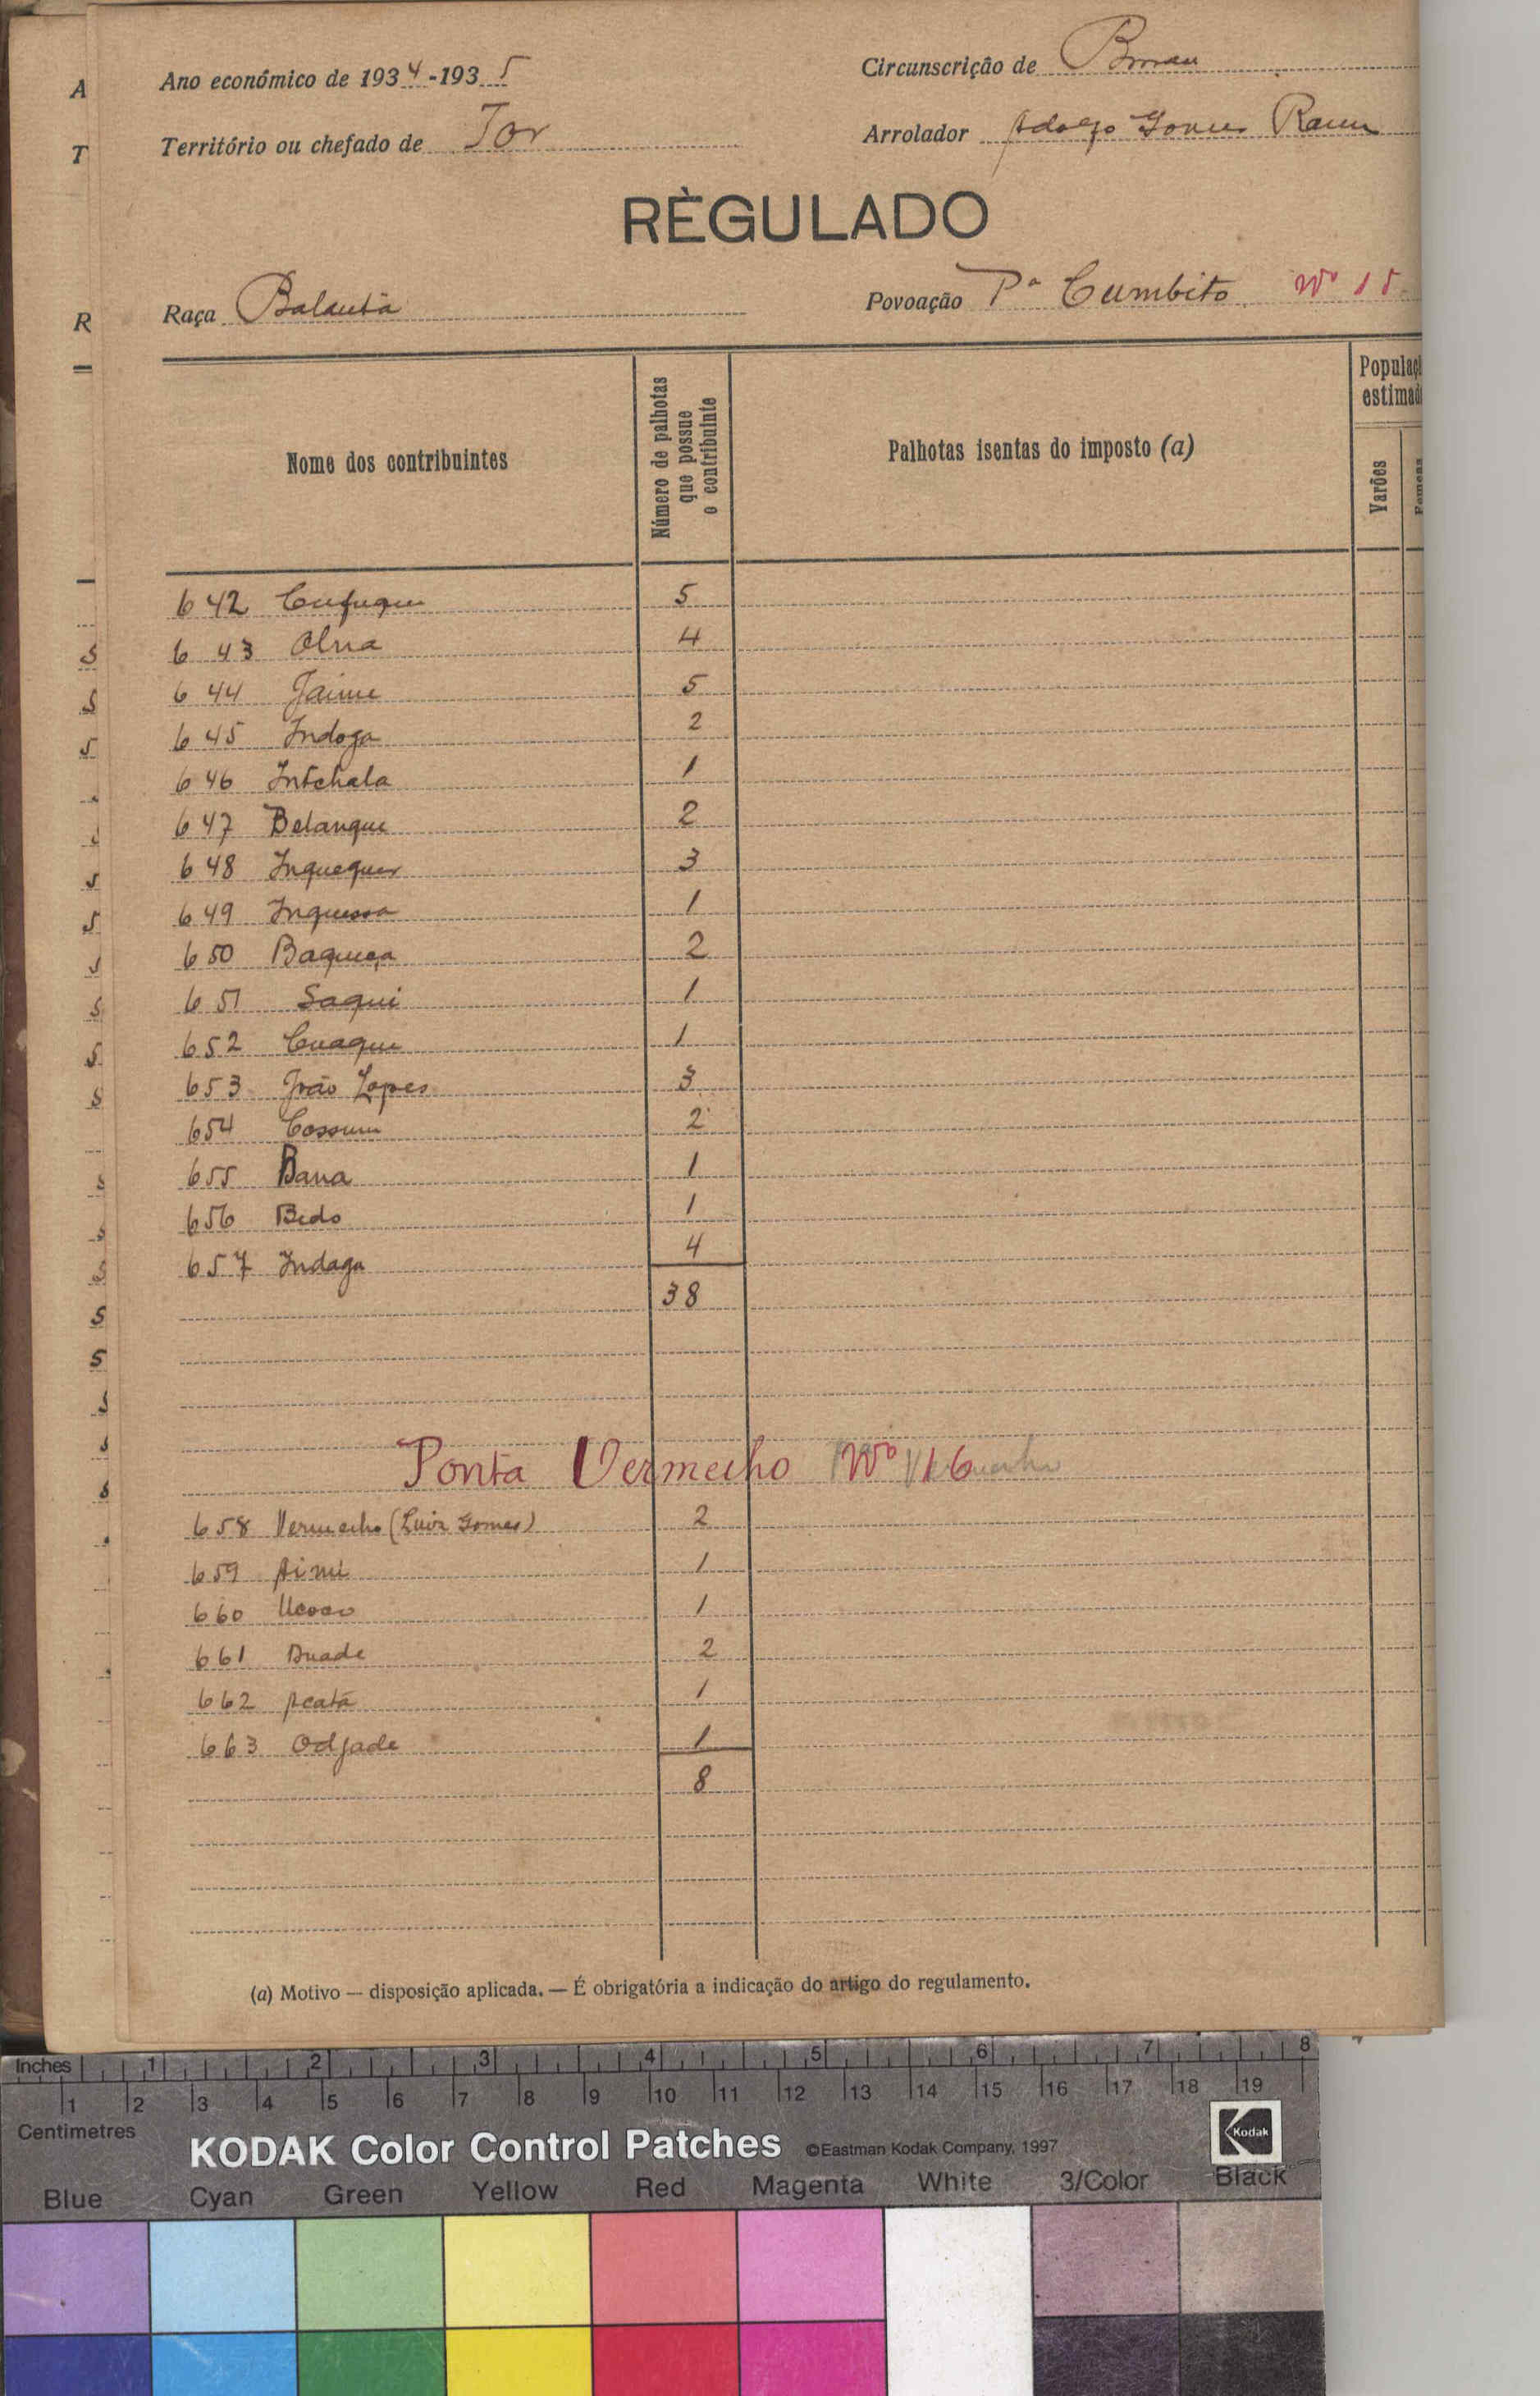 Ano económico de 1934-1935
Circunscrição de
Território ou chefado de Tor
Arrolador Adolfo Gomes
RÈGULADO
Raça Balanta
Povoação Pª Cumbito Nº 15
Nome dos contribuintes
Número de palhotas que possue o contribuinte
Palhotas isentas do imposto (a)
Populaç
estimad
Varões
642 Cufuque 5
643 Alna 4
644 Jaime 5
645 Indoga 2
646 Intchala 1
647 Belanque 2
648 Inqueque 3
649 Inquessa 1
650 Baqueça 2
651 Saqui 1
652 Cuaque 1
653 João Lopes 3
654 Cossum 2
655 Bana 1
656 Bedo 1
657 Indaga 4
38
Ponta Vermelho Nº 16
658 Vermelho (Luiz Gomes) 2
659 1
660 1
661 Duade 2
662 Acatá 1
663 Odjade 1
8
(a) Motivo — disposição aplicada. — É obrigatória a indicação do artigo do regulamento.
Inches 1 2 3 4 5 6 7 8
1 2 3 4 5 6 7 8 9 10 11 12 13 14 15 16 17 18 19
Centimetres
KODAK Color Control Patches ©Eastman Kodak Company, 1997 Kodak
Blue Cyan Green Yellow Red Magenta White 3/Color Black